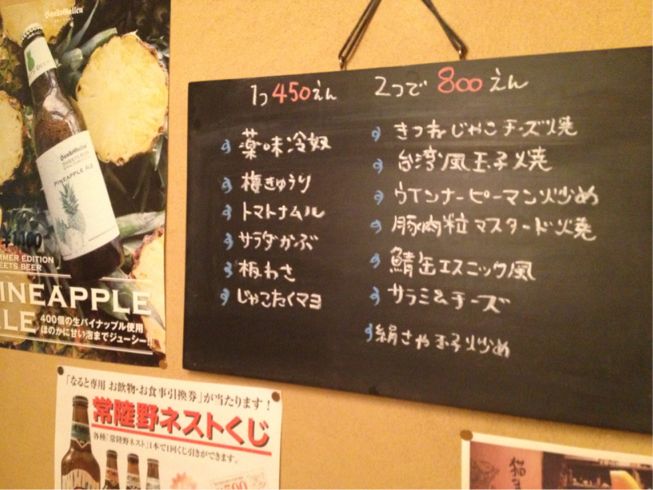 SanktGallen
SanktGallen
PINEAPPLE ALE
SUMMER EDITION
SWEETS BEER
PINEAPPLE
ALE
400個の生パイナップル使用
ほのかに甘い泡までジューシー!!
1つ450えん
薬味冷奴
梅きゅうり
トマトナムル
サラダかぶ
板わさ
じゃこたくマヨ
2つで800えん
きつねじゃこチーズ焼
台湾風玉子焼
ウインナーピーマン炒め
豚肉粒マスタード焼
鯖缶エスニック風
サラミ&チーズ
絹さや玉子炒め
「なると専用 お飲物・お食事引換券」が当たります!
常陸野ネストくじ
各種「常陸野ネスト」1本で1回くじ引きができます。
500
猫